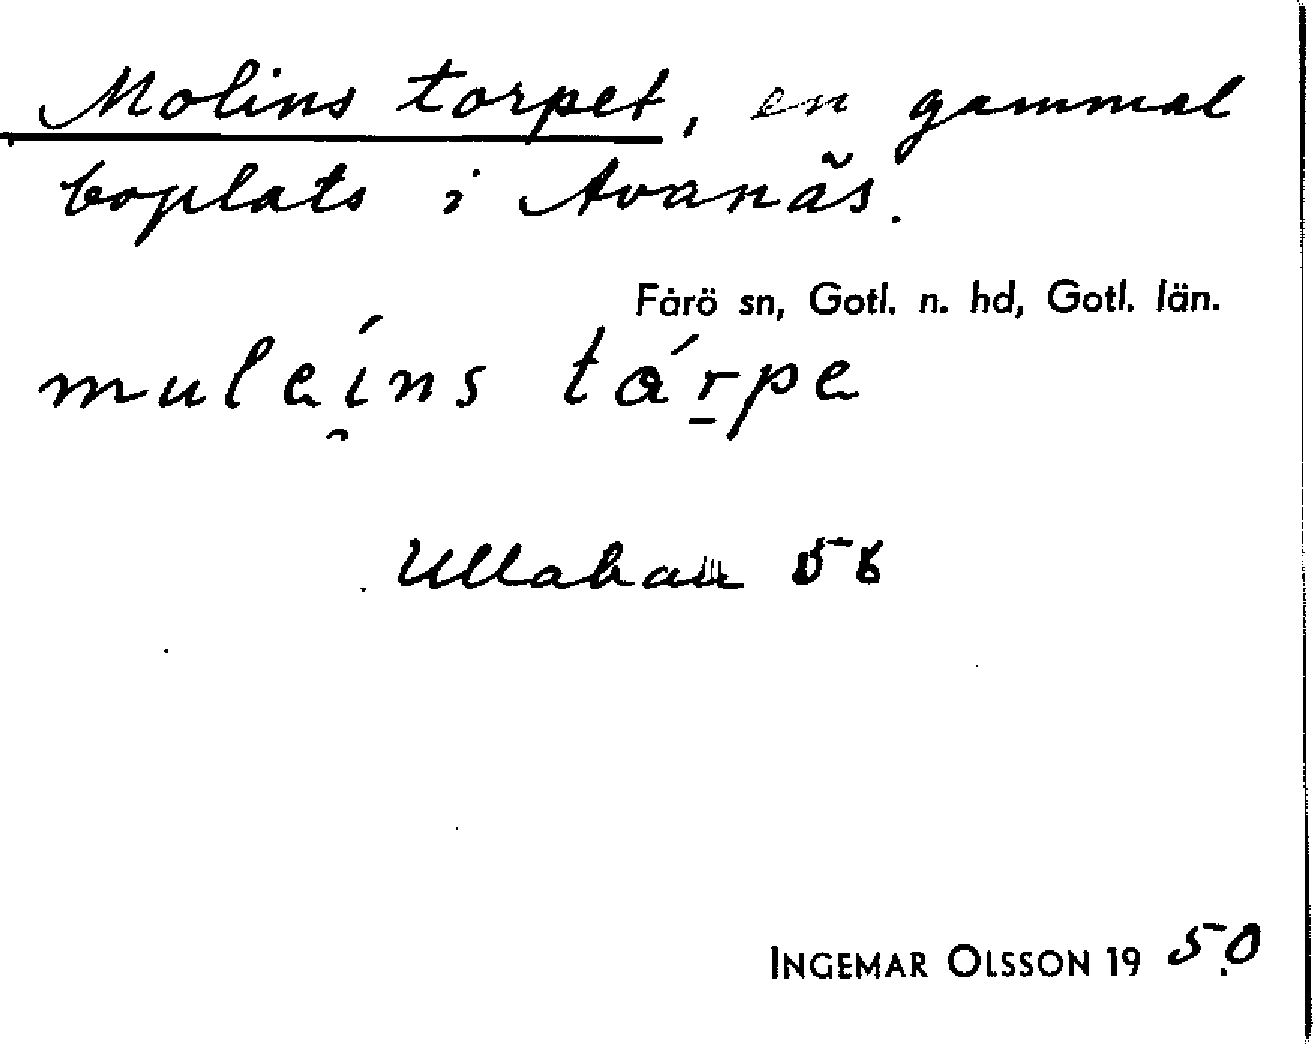 Molins torpet, en gammal
boplats i Avanäs.
Fårö sn, Gotl. n. hd, Gotl. län.
muleíns tárpe
Ullahau 56
INGEMAR OLSSON 19 50